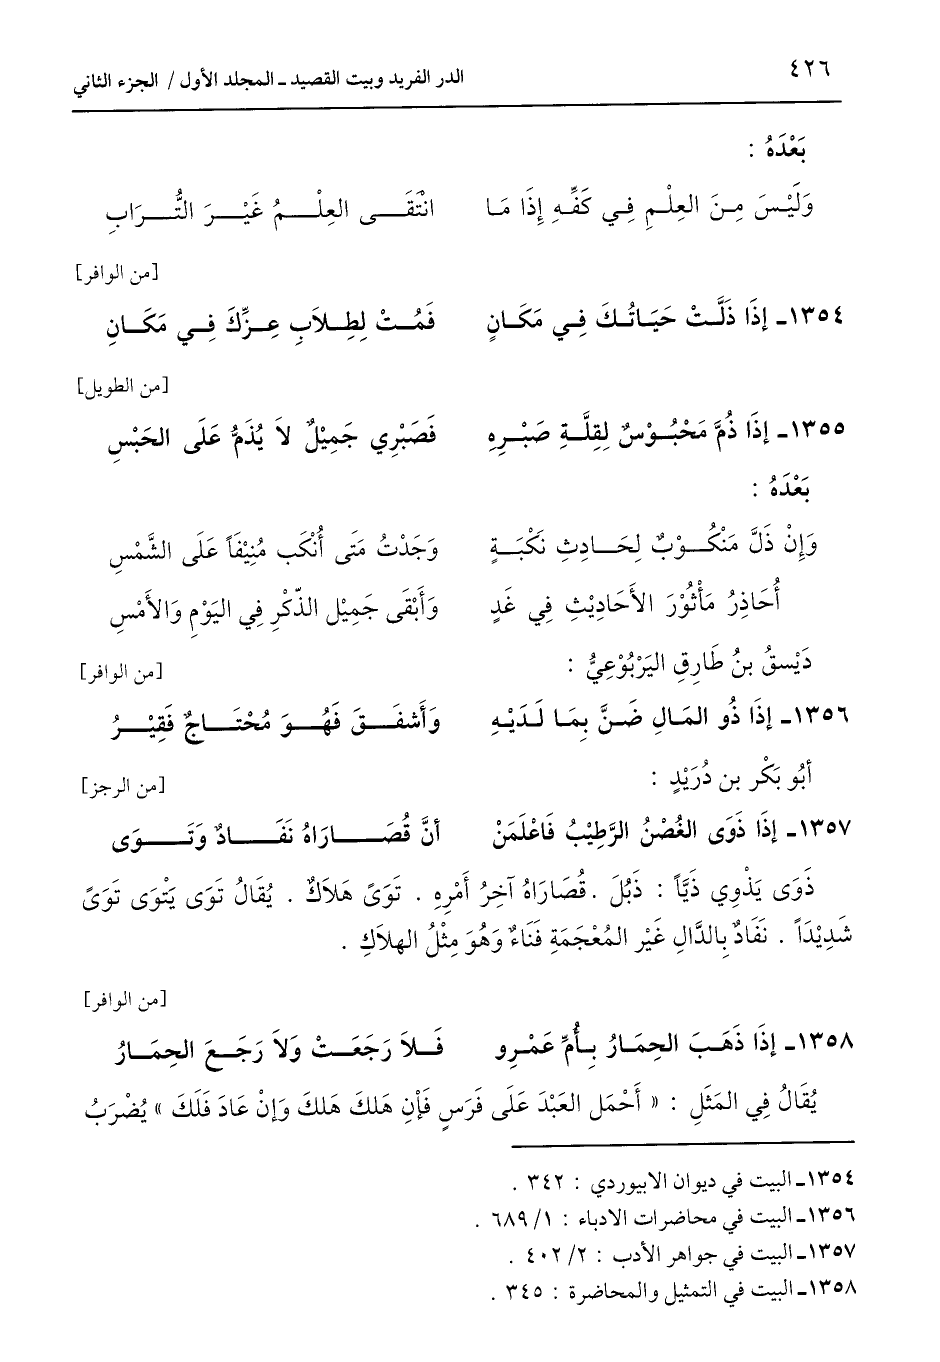 ٤٢٦ الدر الفريد وبيت القصيد ـ المجلد الأول / الجزء الثاني
بَعْدَهُ :
وَلَيْسَ مِنَ العِلْمِ فِي كَفِّهِ إِذَا مَا انْتَقَى العِلْمُ غَيْرَ التُّرَابِ
[من الوافر]
١٣٥٤ـ إِذَا ذَلَّتْ حَيَاتُكَ فِي مَكَانٍ فَمُتْ لِطِلَابِ عِزِّكَ فِي مَكَانِ
[من الطويل]
١٣٥٥ـ إِذَا ذُمَّ مَحْبُوْسٌ لِقِلَّةِ صَبْرِهِ فَصَبْرِي جَمِيْلٌ لاَ يُذَمُّ عَلَى الحَبْسِ
بَعْدَهُ :
وَإِنْ ذَلَّ مَنْكُوْبٌ لِحَادِثِ نَكْبَةٍ وَجَدْتُ مَتَى أُنْكَب مُنِيْفَاً عَلَى الشَّمْسِ
أُحَاذِرُ مَأْثُوْرَ الأَحَادِيْثِ فِي غَدٍ وَأَبْقَى جَمِيْل الذّكْرِ فِي اليَوْمِ وَالأَمْسِ
دَيْسقُ بنُ طَارِقِ اليَرْبُوْعِيُّ :
[من الوافر]
١٣٥٦ـ إِذَا ذُو المَالِ ضَنَّ بِمَا لَدَيْهِ وَأَشفَقَ فَهُوَ مُحْتَاجٌ فَقِيْرُ
أبُو بَكْر بن دُرَيْدٍ :
[من الرجز]
١٣٥٧ـ إِذَا ذَوَى الغُصْنُ الرَّطِيْبُ فَاعْلَمَنْ أنَّ قُصَارَاهُ نَفَادٌ وَتَوَى
ذَوَى يَذْوِي ذَيَّاً : ذَبُلَ . قُصَارَاهُ آخِرُ أَمْرِهِ . تَوَىً هَلاَكٌ . يُقَالُ تَوَى يَتْوَى تَوَىً
شَدِيْدَاً . نَفَادٌ بِالدَّالِ غَيْر المُعْجَمَةِ فَنَاءٌ وَهُوَ مِثْلُ الهلاَكِ .
[من الوافر]
١٣٥٨ـ إِذَا ذَهَبَ الحِمَارُ بِأُمِّ عَمْرِو فَلاَ رَجَعَتْ وَلاَ رَجَعَ الحِمَارُ
يُقَالُ فِي المَثَلِ : « أَحْمَل العَبْدَ عَلَى فَرَسٍ فَأْنِ هَلكَ هَلكَ وَإِنْ عَادَ فَلَكَ » يُضْرَبُ
١٣٥٤ـ البيت في ديوان الابيوردي : ٣٤٢ .
١٣٥٦ـ البيت في محاضرات الادباء : ١/ ٦٨٩ .
١٣٥٧ـ البيت في جواهر الأدب : ٢/ ٤٠٢ .
١٣٥٨ـ البيت في التمثيل والمحاضرة : ٣٤٥ .